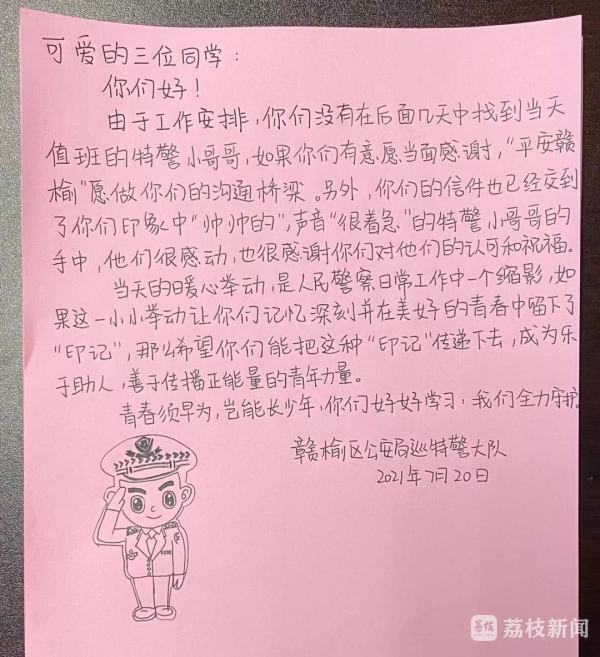 可爱的三位同学：
你们好！
由于工作安排，你们没有在后面几天中找到当天
值班的特警小哥哥，如果你们有意愿当面感谢，“平安赣
榆”愿做你们的沟通桥梁。另外，你们的信件也已经交到
了你们印象中“帅帅的”，声音“很着急”的特警小哥哥的
手中，他们很感动，也很感谢你们对他们的认可和祝福。
当天的暖心举动，是人民警察日常工作中一个缩影，如
果这一小小举动让你们记忆深刻并在美好的青春中留下了
“印记”，那么希望你们能把这种“印记”传递下去，成为乐
于助人，善于传播正能量的青年力量。
青春须早为，岂能长少年，你们好好学习，我们全力守护。
赣榆区公安局巡特警大队
2021年7月20日
荔枝 荔枝新闻